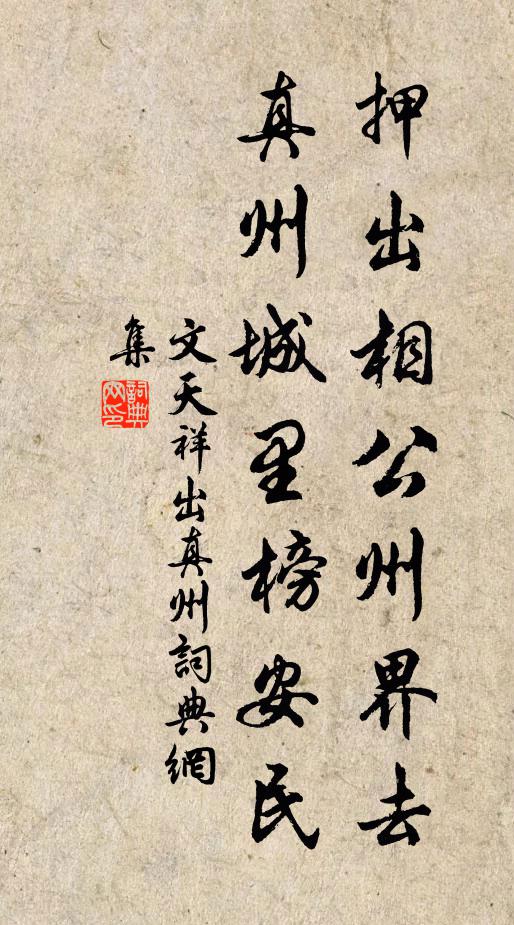 押出相公州界去
真州城里榜安民
文天祥出真州詞典網
集
詞典
网印